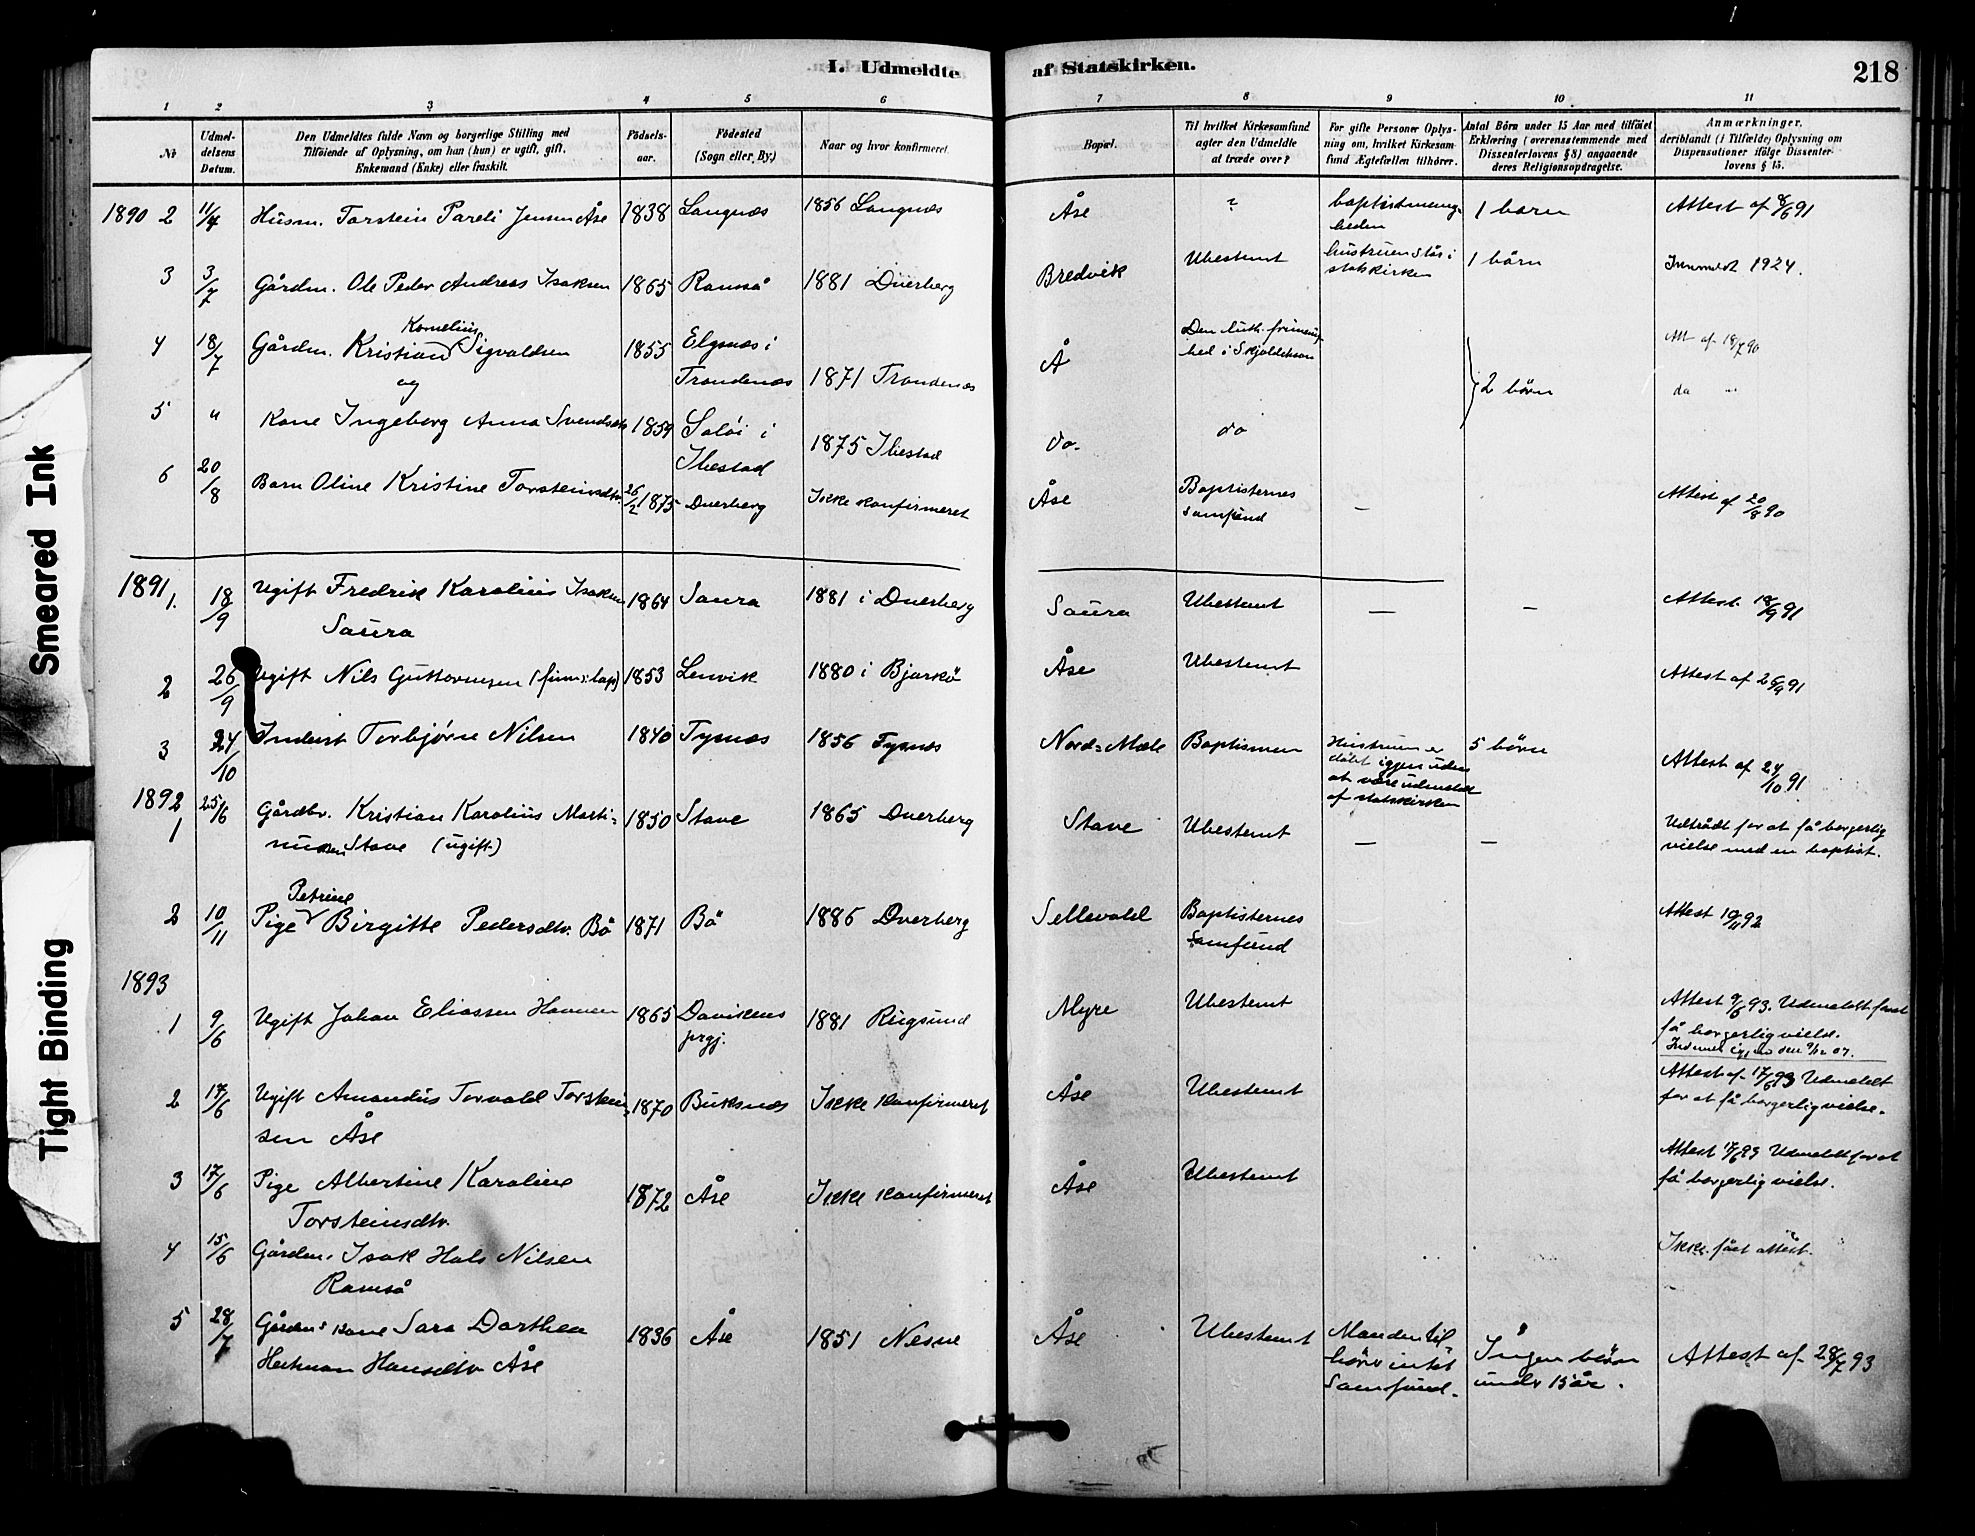 I. Udmeldte
af Statskirken.
218
1 2 3 4 5 6 7 8 9 10 11
№
Udmel-
delsens
Datum.
Den Udmeldtes fulde Navn og borgerlige Stilling med
Tilføiende af Oplysning, om han (hun) er ugift, gift,
Enkemand (Enke) eller fraskilt.
Fødsels-
aar.
Fødested
(Sogn eller By.)
Naar og hvor konfirmeret.
Bopæl.
Til hvilket Kirkesamfund
agter den Udmeldte
at træde over?
For gifte Personer Oplys-
ning om, hvilket Kirkesam-
fund Ægtefællen tilhører.
Antal Børn under 15 Aar med tilføiet
Erklæring (overensstemmende med
Dissenterlovens § 8) angaaende
deres Religionsopdragelse.
Anmærkninger,
deriblandt (i Tilfælde) Oplysning om
Dispensationer ifølge Dissenter-
lovens § 15.
1890 2 11/4 Husm. Torstein Pareli Jensen Åse 1838 Langnæs 1856 Langnæs Åse ? baptistmenig-
heden 1 barn Attest af 8/6 91
3 3/7 Gårdm. Ole Peder Andreas Isaksen 1865 Ramså 1881 Dverberg Bredvik Ubestemt hustruen står i
statskirken 1 børn Innmeldt 1924.
4 18/7 Gårdm. Kristian Kornelius Sigvaldsen 1855 Elgsnæs i
Trondenæs 1871 Trondenæs Å Den luth. frimenig-
hed i Skjoldehavn Att af 18/7 90
og
} 2 børn
5 " Kone Ingeborg Anna Svendsdtr 1859 Soløi i
Ibestad 1875 Ibestad do. do do "
6 20/8 Barn Oline Kristine Torsteinsdtr. 26/2 1875 Dverberg Ikke konfirmeret Åse Baptisternes
samfund — Attest af 20/8 90
1891 1. 18/9 Ugift Fredrik Karolius Isaksen
Saura 1864 Saura 1881 i Dverberg Saura Ubestemt — — Attest. 18/9 91
2 26/9 Ugift Nils Guttormsen (finn: lap) 1853 Lenvik 1880 i Bjarkö Åse Ubestemt Attest af 26/9 91
3 24/10 Inderst Torbjørn Nilsen 1840 Tysnæs 1856 Tysnæs Nord-Mæle Baptismen Hustruen er
døbt igjen uden
at være udmeldt
af statskirken 5 børn Attest af 24/10 91
1892
1 25/6 Gårdbr. Kristian Karolius Marti-
nussen Stave (ugift) 1850 Stave 1865 Dverberg Stave Ubestemt — — Udtrådt for at få borgerlig
vielse med en baptist.
2 10/11 Pige Petrine Birgitte Pedersdtr. Bö 1871 Bö 1886 Dverberg Sellevold Baptisternes
Samfund Attest 10/11 92
1893
1 9/6 Ugift Johan Eliassen Havnen 1865 Davikens
prgj. 1881 Rugsund Myre Ubestemt Attest 9/6 93. Udmeldt for at
få borgerlig vielse.
Indmeldt igjen den 9/12 07.
2 17/6 Ugift Amandus Torvald Torstein-
sen Åse 1870 Buksnæs Ikke konfirmeret Åse Ubestemt Attest af 17/6 93 Udmeldt
for at få borgerlig vielse.
3 17/6 Pige Albertine Karoline
Torsteinsdtr. 1872 Åse Ikke konfirmeret Åse Ubestemt Attest 17/6 93 Udmeldt for at
få borgerlig vielse.
4 15/6 Gårdm. Isak Hals Nilsen
Ramså Ikke fået attest.
5 28/7 Gårdm's kone Sara Dorthea
Hansdtr Åse 1836 Åse 1851 Nesne Åse Ubestemt Manden til-
hører intet
Samfund. Ingen børn
under 15 år. Attest af 28/7 93
Smeared Ink
Tight Binding